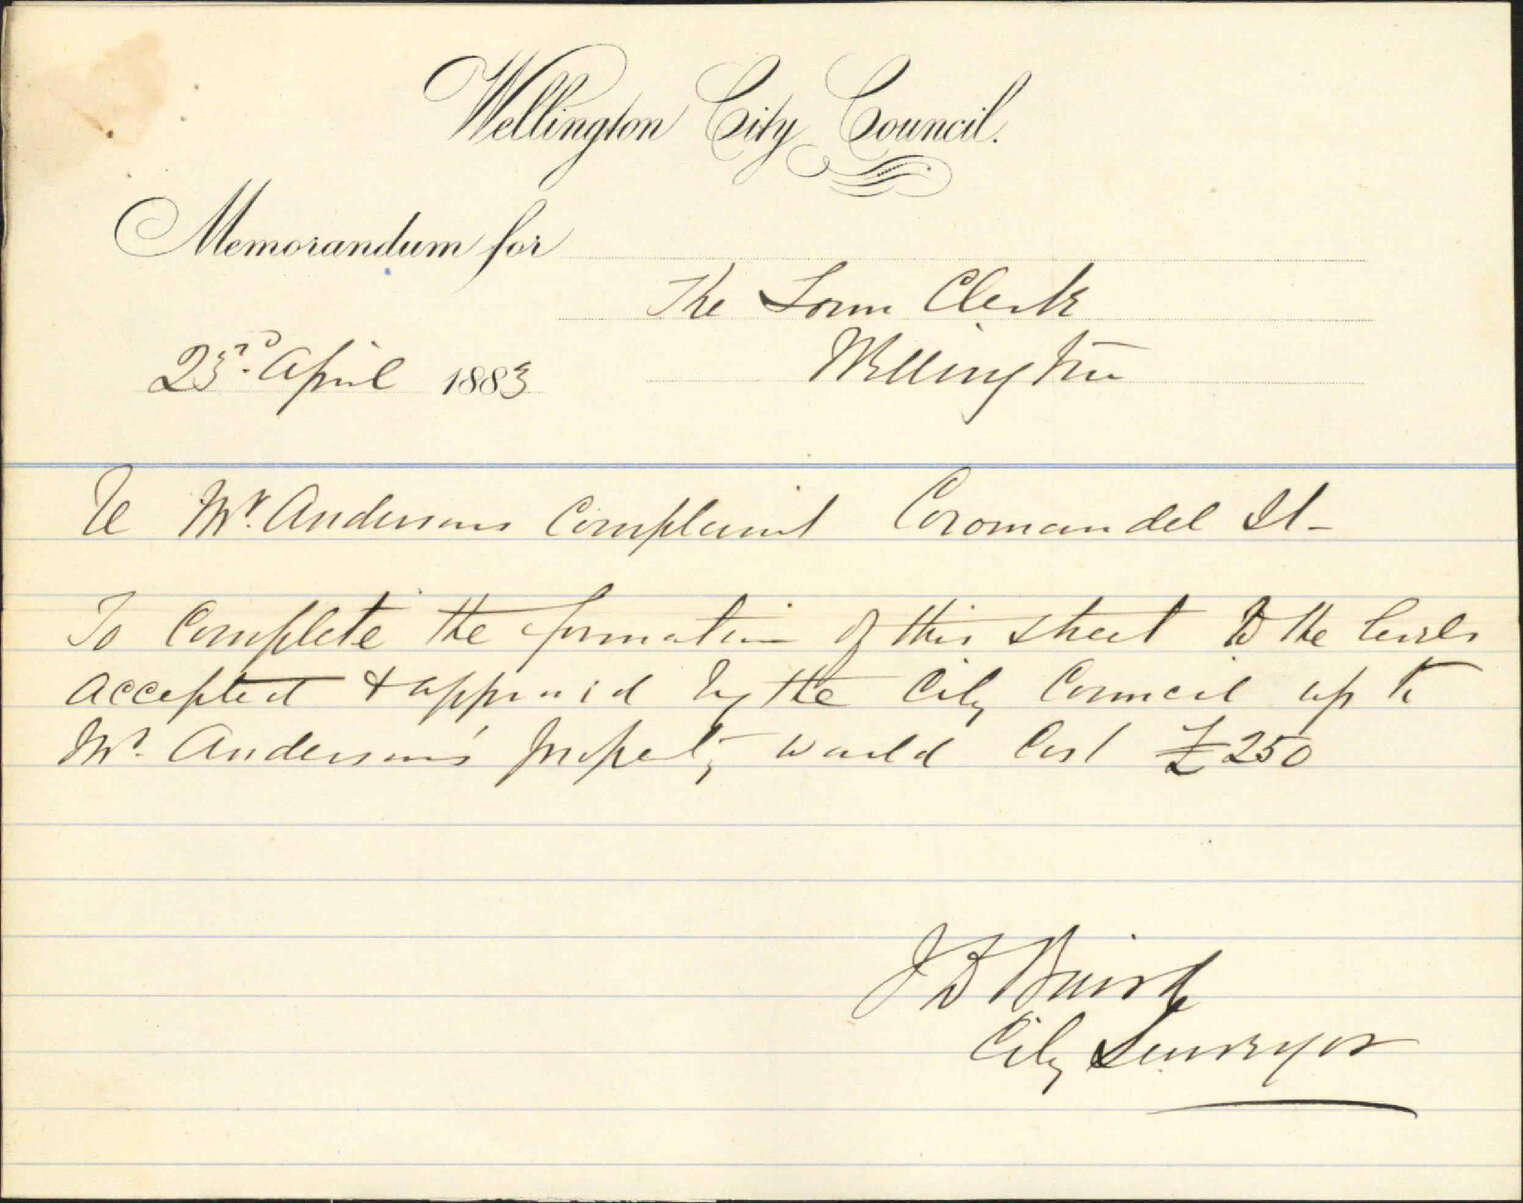 Wellington City Council.
Memorandum for
The Town Clerk
23rd April 1883
Wellington
Re Mr. Andersons Complaint Coromandel St-
To Complete the formation of this street to the levels
accepted & approved by the City Council up to
Mr. Anderson's property would Cost £250
J D Baird
City Surveyor